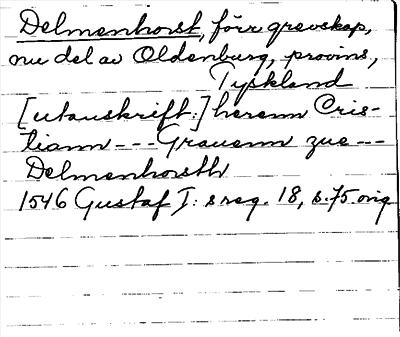 Delmenhorst, förr grevskap,
nu del av Oldenburg, provins,
Tyskland
[utanskrift:] herenn Cris-
tiann --- Grauenn zue ---
Delmenhorsth
1546 Gustaf I: s reg. 18, s. 75 orig